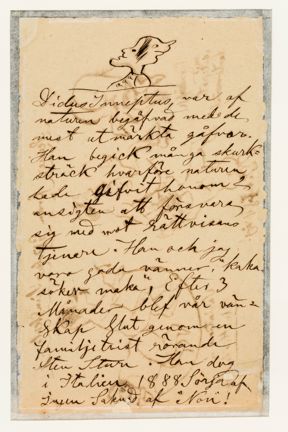 Didus Inneptus, var af
naturen begåfvad med de
mest utmärkta gåfvor.
Han begick många skurk-
sträck hvarföre naturen
hade gifvit honom 2
ansigten att försvara
sig med mot Rättvisans
tjenare. Han och jag
voro goda vänner, "kaka
söker maka", Efter 3
Månader blef vår vän=
skap Slut genom en
familjetvist rörande
Sten Sture. Han dog
i Italien 1888 Sörjd af
Ingen Saknad af "Non"!